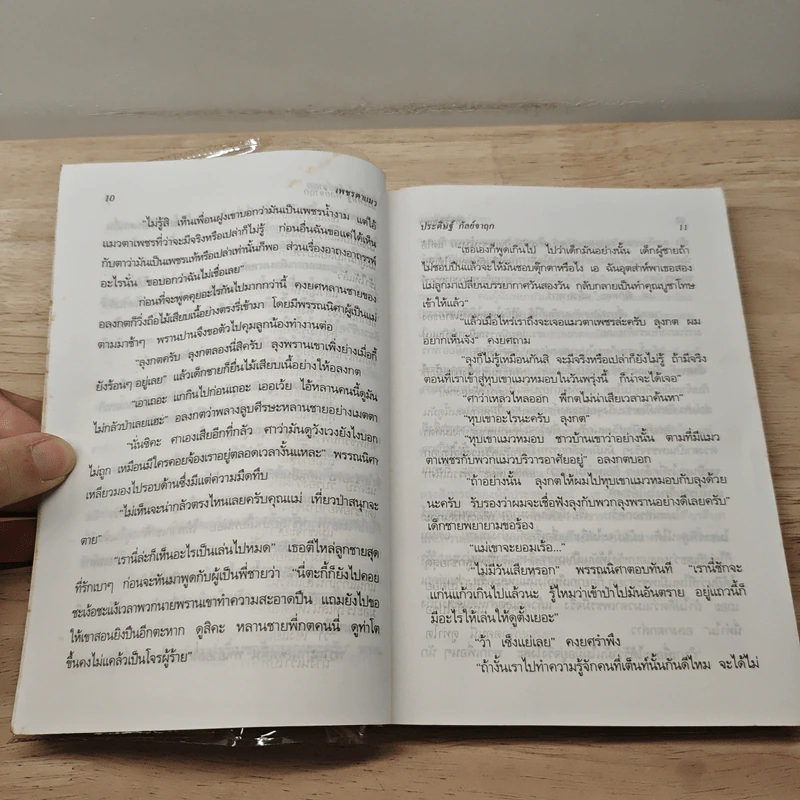 10
เพชรตาแมว
"ไม่รู้สิ เห็นเพื่อนฝูงเขาบอกว่ามันเป็นเพชรน้ำงาม แต่ไอ้
แมวตาเพชรที่ว่าจะมีจริงหรือเปล่าก็ไม่รู้ ก่อนอื่นฉันขอแค่ได้เห็น
กับตาว่ามันเป็นเพชรแท้หรือเปล่าเท่านั้นก็พอ ส่วนเรื่องอาถุงอาถุรรพ์
อะไรนั่น ขอบอกว่าฉันไม่เชื่อเลย"
ก่อนที่จะพูดคุยอะไรกันไปมากกว่านี้ คงยศหลานชายของ
อลงกตก็วิ่งถือไม้เสียบเนื้อย่างตรงรี่เข้ามา โดยมีพรรณนิศาผู้เป็นแม่
ตามมาช้าๆ พรานปานจึงขอตัวไปคุมลูกน้องทำงานต่อ
"ลุงกตครับ ลุงกตลองนี่สิครับ ลุงพรานเขาเพิ่งย่างเมื่อกี้
ยังร้อนๆ อยู่เลย" แล้วเด็กชายก็ยื่นไม้เสียบเนื้อย่างให้อลงกต
"เอาเถอะ แกกินไปก่อนเถอะ เออเว้ย ไอ้หลานคนนี้ดูมัน
ไม่กลัวป่าเลยแฮะ" อลงกตว่าพลางลูบศีรษะหลานชายอย่างเมตตา
"นั่นซิคะ ศาเองเสียอีกที่กลัว ศาว่ามันดูวังเวงยังไงบอก
ไม่ถูก เหมือนมีใครคอยจ้องเราอยู่ตลอดเวลางั้นแหละ" พรรณนิศา
เหลียวมองไปรอบด้านซึ่งมีแต่ความมืดทึบ
"ไม่เห็นจะน่ากลัวตรงไหนเลยครับคุณแม่ เที่ยวป่าสนุกจะ
ตาย"
"เรานี่ล่ะก็เห็นอะไรเป็นเล่นไปหมด" เธอตีไหล่ลูกชายสุด
ที่รักเบาๆ ก่อนจะหันมาพูดกับผู้เป็นพี่ชายว่า "นี่ตะกี้ก็ยังไปคอย
ชะเง้อชะแง้งเวลาพวกนายพรานเขาทำความสะอาดปืน แถมยังไปขอ
ให้เขาสอนยิงปืนอีกตะหาก ดูสิคะ หลานชายพี่กตคนนี้ ดูท่าโต
ขึ้นคงไม่แคล้วเป็นโจรผู้ร้าย"
ประดิษฐ์ กัลย์จาฤก
11
"เธอเองก็พูดเกินไป ไปว่าเด็กมันอย่างนั้น เด็กผู้ชายถ้า
ไม่ชอบปืนแล้วจะให้มันชอบตุ๊กตาหรือไง เอ ฉันอุตส่าห์พาเธอสอง
แม่ลูกมาเปลี่ยนบรรยากาศวันสองวัน กลับกลายเป็นทำคุณบูชาโทษ
เข้าให้แล้ว"
"แล้วเมื่อไหร่เราถึงจะเจอแมวตาเพชรล่ะครับ ลุงกต ผม
อยากเห็นจัง" คงยศถาม
"ลุงก็ไม่รู้เหมือนกันสิ จะมีจริงหรือเปล่าก็ยังไม่รู้ ถ้ามีจริง
ตอนที่เราเข้าสู่หุบเขาแมวหมอบในวันพรุ่งนี้ ก็น่าจะได้เจอ"
"ศาว่าเหลวไหลออก พี่กตไม่น่าเสียเวลามาค้นหา"
"หุบเขาอะไรนะครับ ลุงกต"
"หุบเขาแมวหมอบ ชาวบ้านเขาว่าอย่างนั้น ตามที่มีแมว
ตาเพชรกับพวกแมวบริวารอาศัยอยู่" อลงกตบอก
"ถ้าอย่างนั้น ลุงกตให้ผมไปหุบเขาแมวหมอบกับลุงด้วย
นะครับ รับรองว่าผมจะเชื่อฟังลุงกับพวกลุงพรานอย่างดีเลยครับ"
เด็กชายพยายามขอร้อง
"แม่เขาจะยอมเร้อ..."
"ไม่มีวันเสียหรอก" พรรณนิศาตอบทันที "เรานี่ชักจะ
แก่นแก้วเกินไปแล้วนะ รู้ไหมว่าเข้าป่าไปมันอันตราย อยู่แถวนี้ก็
มีอะไรให้เล่นให้ดูตั้งเยอะ"
"ว้า เซ็งแย่เลย" คงยศรำพึง
"ถ้างั้นเราไปทำความรู้จักคนที่เต็นท์นั้นกันดีไหม จะได้ไม่